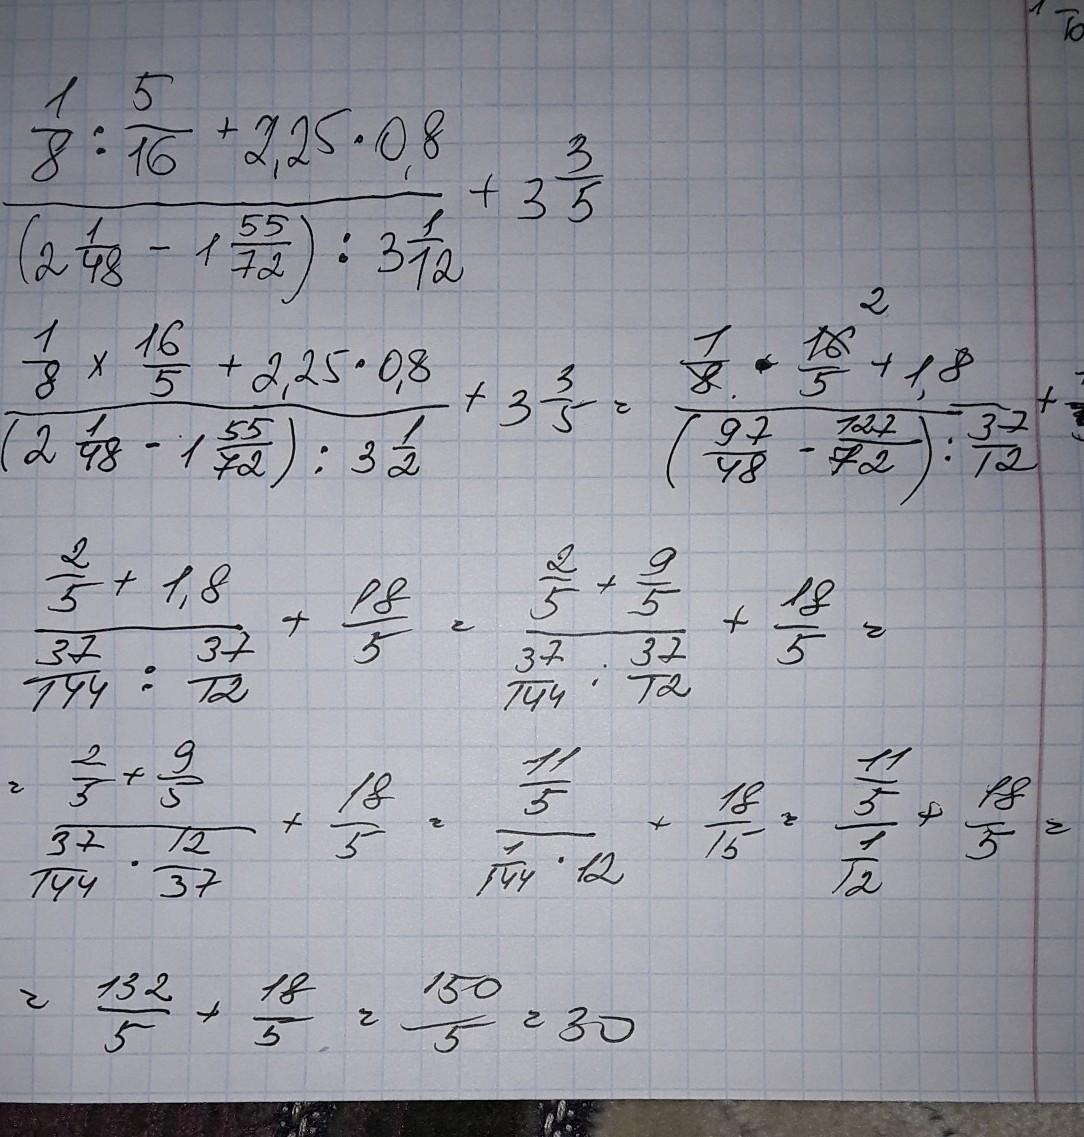 1/8 : 5/16 + 2,25 · 0,8 / (2 1/48 - 1 55/72) : 3 1/12 + 3 3/5
1/8 × 16/5 + 2,25 · 0,8 / (2 1/48 - 1 55/72) : 3 1/2 + 3 3/5 = 1/8 · 16/5 2 + 1,8 / (97/48 - 127/72) : 37/12 +
2/5 + 1,8 / 37/144 : 37/12 + 18/5 = 2/5 + 9/5 / 37/144 : 37/12 + 18/5 =
= 2/5 + 9/5 / 37/144 · 12/37 + 18/5 = 11/5 / 1/144 · 12 + 18/15 = 11/5 / 1/12 + 18/5 =
= 132/5 + 18/5 = 150/5 = 30